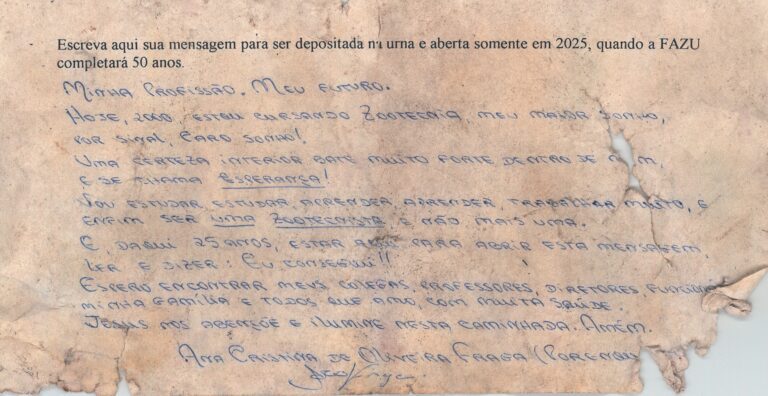 Escreva aqui sua mensagem para ser depositada na urna e aberta somente em 2025, quando a FAZU
completará 50 anos.
Minha Profissão. Meu futuro.
Hoje, 2000, estou cursando Zootecnia, meu maior sonho,
por sinal, caro sonho!
Uma certeza interior bate muito forte dentro de mim,
e se chama Esperança!
Vou estudar, estudar, aprender, aprender, trabalhar muito, e
enfim ser uma Zootecnista e não mais uma.
E, daqui 25 anos, estar aqui para abrir esta mensagem,
ler e dizer: Eu consegui!!
Espero encontrar meus colegas, professores, diretores,
minha família e todos que amo, com muita saúde.
Jesus nos abençõe e ilumine nesta caminhada. Amém.
Ana Cristina de Oliveira Fraga